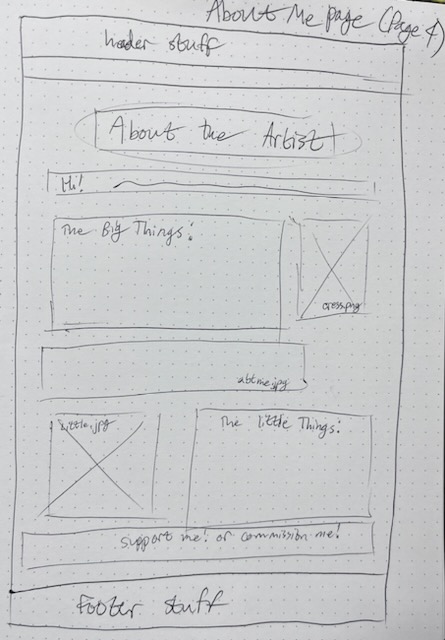 About Me page (Page 4)
header stuff
About the Artist
Hi!
The Big Things:
cross.png
abtme.jpg
Little.jpg
The little Things:
support me! or commission me!
Footer stuff